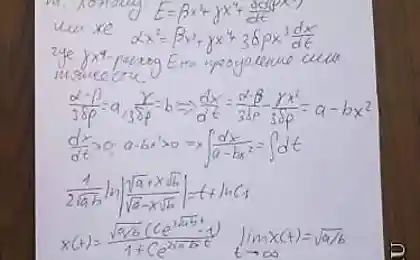 E=βx³+γx⁴+
или же αx²=βx²+γx⁴+3δρx²dx/dt
где γx⁴-расход E на преодоление силы
тяжести.
(α-β)/3δρ=a, γ/3δρ=b ⇒ dx/dt=(α-β)/3δρ-γx²/3δρ=a-bx²
dx/dt>0, a-bx²>0 ⇒ ∫dx/(a-bx²)=∫dt
1/(2√ab) ln|(√a+x√b)/(√a-x√b)|=t+lnC₁
x(t)=√a/b(Ce^(2√ab t)-1)/(1+Ce^(2√ab t)) lim x(t)=√a/b
t→∞